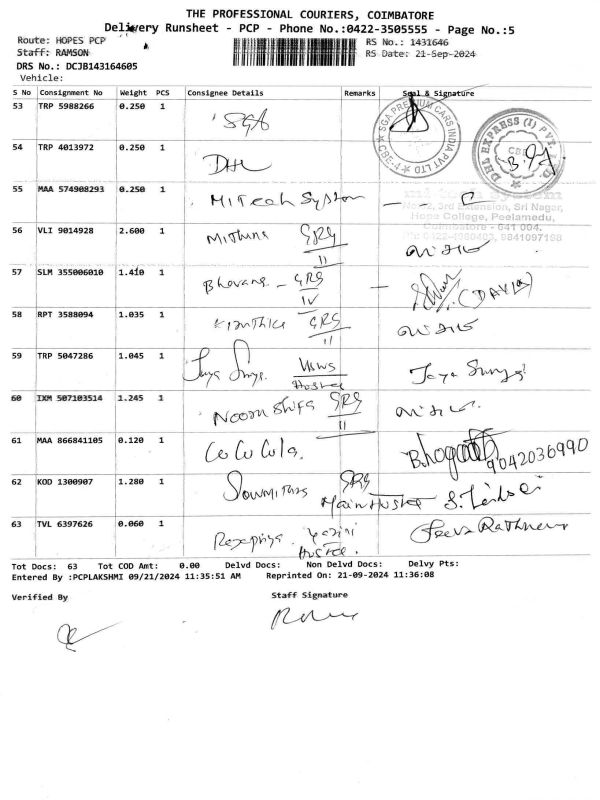 THE PROFESSIONAL COURIERS, COIMBATORE
Delivery Runsheet - PCP - Phone No.:0422-3505555 - Page No.:5
Route: HOPES PCP RS No.: 1431646
Staff: RAMSON RS Date: 21-Sep-2024
DRS No.: DCJB143164605
Vehicle:
S No Consignment No Weight PCS Consignee Details Remarks Seal & Signature
53 TRP 5988266 0.250 1 SGA
SGA PREMIUM CARS INDIA PVT LTD CBE-4
54 TRP 4013972 0.250 1 DHL
DHL EXPRESS (I) PVT.
CBE
55 MAA 574908293 0.250 1 MiTech System
mi tech system
No. 2, 3rd Extension, Sri Nagar,
Hope College, Peelamedu,
Coimbatore - 641 004.
9841097198
56 VLI 9014928 2.600 1 Mithuna GRG II
57 SLM 355006010 1.410 1 Bhavana - GRG IV
58 RPT 3588094 1.035 1 GRG II
59 TRP 5047286 1.045 1 Hostel Jaya Surya
60 IXM 507103514 1.245 1 Noorn Shifa GRG II
61 MAA 866841105 0.120 1 9042036990
62 KOD 1300907 1.280 1 GRG Main Hostel
63 TVL 6397626 0.060 1 Hostel
Tot Docs: 63 Tot COD Amt: 0.00 Delvd Docs: Non Delvd Docs: Delvy Pts:
Entered By :PCPLAKSHMI 09/21/2024 11:35:51 AM Reprinted On: 21-09-2024 11:36:08
Verified By Staff Signature